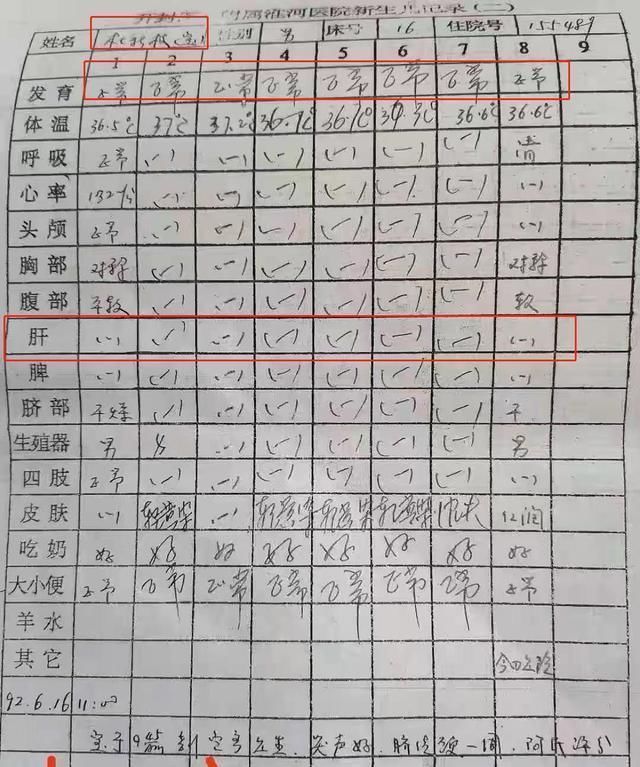 附属淮河医院新生儿记录(二)
姓名 性别 男 床号 16 住院号 155489
1 2 3 4 5 6 7 8 9
发育 正常 正常 正常 正常 正常 正常 正常 正常
体温 36.5℃ 37℃ 37.2℃ 36.7℃ 36.7℃ 37.3℃ 36.6℃ 36.6℃
呼吸 正常 (-) (-) (-) (-) (-) (-) 清
心率 132次/分 (-) (-) (-) (-) (-) (-) (-)
头颅 正常 (-) (-) (-) (-) (-) (-) (-)
胸部 对称 (-) (-) (-) (-) (-) (-) 对称
腹部 平软 (-) (-) (-) (-) (-) (-) 软
肝 (-) (-) (-) (-) (-) (-) (-) (-)
脾 (-) (-) (-) (-) (-) (-) (-) (-)
脐部 干燥 (-) (-) (-) (-) (-) (-) 干
生殖器 男 男 (-) (-) (-) (-) (-) 男
四肢 正常 (-) (-) (-) (-) (-) (-) (-)
皮肤 (-) 轻黄染 (-) 轻黄染 轻黄染 轻黄染 红润
吃奶 好 好 好 好 好 好 好 好
大小便 正常 正常 正常 正常 正常 正常 正常 正常
羊水
其它 今日出院
92.6.16 11:00
宝于 9 哭声好. 脐绕颈一周.